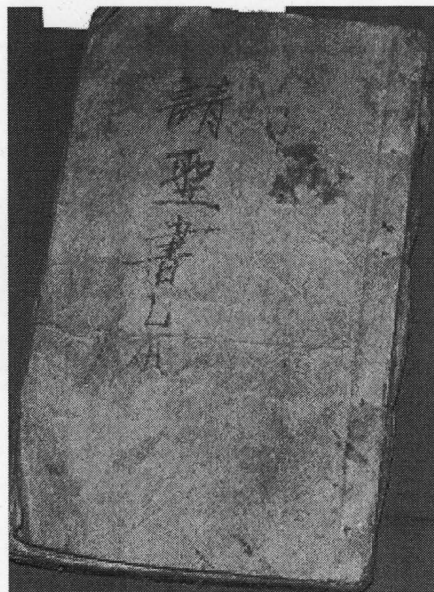 請聖書乙本